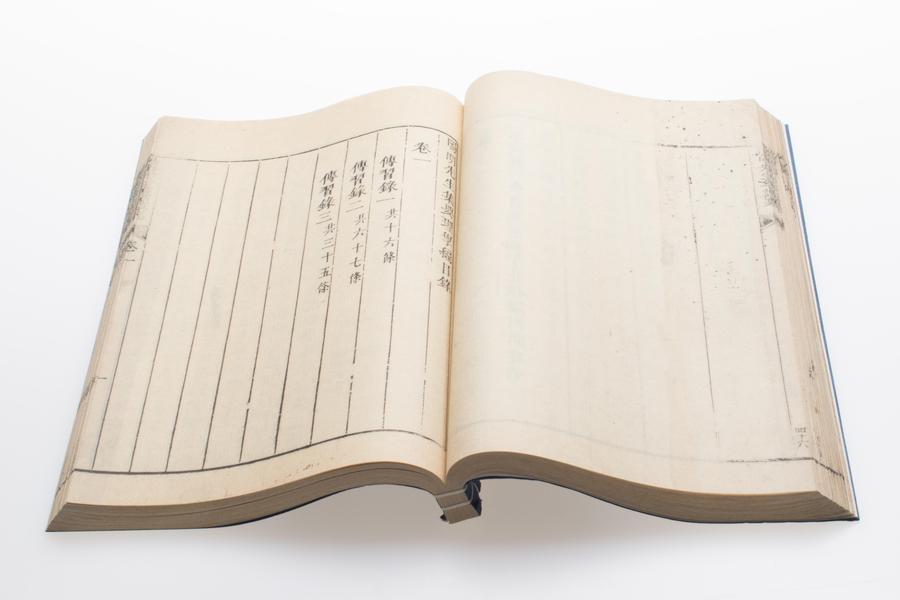 陽明先生集要理學編目錄
卷一
傳習錄一 共十六條
傳習錄二 共六十七條
傳習錄三 共三十五條
卷一